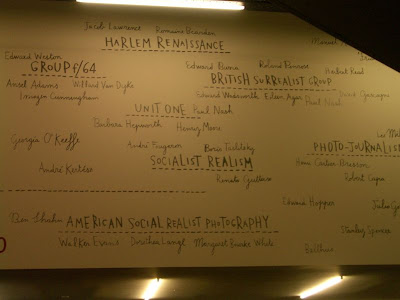 Jacob Lawrence Romare Bearden
HARLEM RENAISSANCE
Edward Weston
GROUP f/64
Ansel Adams Willard Van Dyke
Imogen Cunningham
Edward Burra Roland Penrose
Herbert Read
BRITISH SURREALIST GROUP
Edward Wadsworth Eileen Agar Paul Nash
UNIT ONE Paul Nash
Barbara Hepworth Henry Moore
Georgia O'Keeffe
Boris Taslitzky
SOCIALIST REALISM
PHOTO-JOURNALIS
André Kertész
Renato Guttuso
Henri Cartier Bresson
Robert Capa
Edward Hopper
Ben Shahn
AMERICAN SOCIAL REALIST PHOTOGRAPHY
Stanley Spencer
Walker Evans Dorothea Lange Margaret Bourke White
Balthus